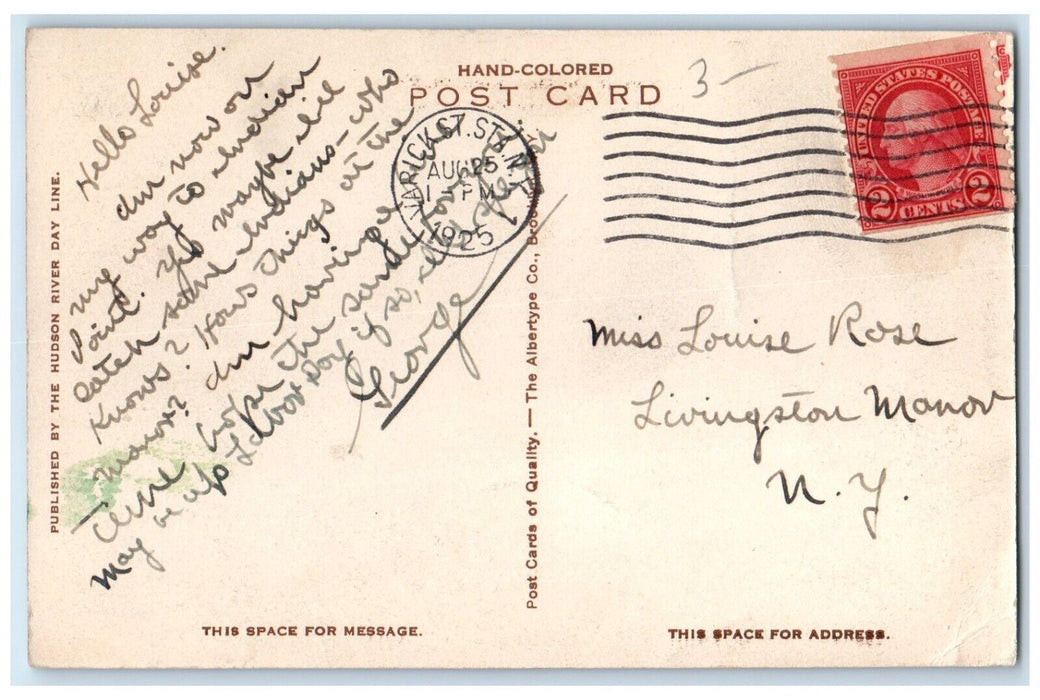 HAND-COLORED
POST CARD
3 —
PUBLISHED BY THE HUDSON RIVER DAY LINE.
Hello Louise.
Am now on
my way to Indian
Point. Yes maybe I'll
catch some Indians - who
knows? Hows things at the
Manor? Am having a
time hope the same
may be up Labor Day if so,
George
VARICK ST. STA. N.Y.
AUG 25
1 - PM
1925
UNITED STATES POSTAGE
2 CENTS 2
Post Cards of Quality. — The Albertype Co., Broo
Miss Louise Rose
Livingston Manor
N.Y.
THIS SPACE FOR MESSAGE.
THIS SPACE FOR ADDRESS.